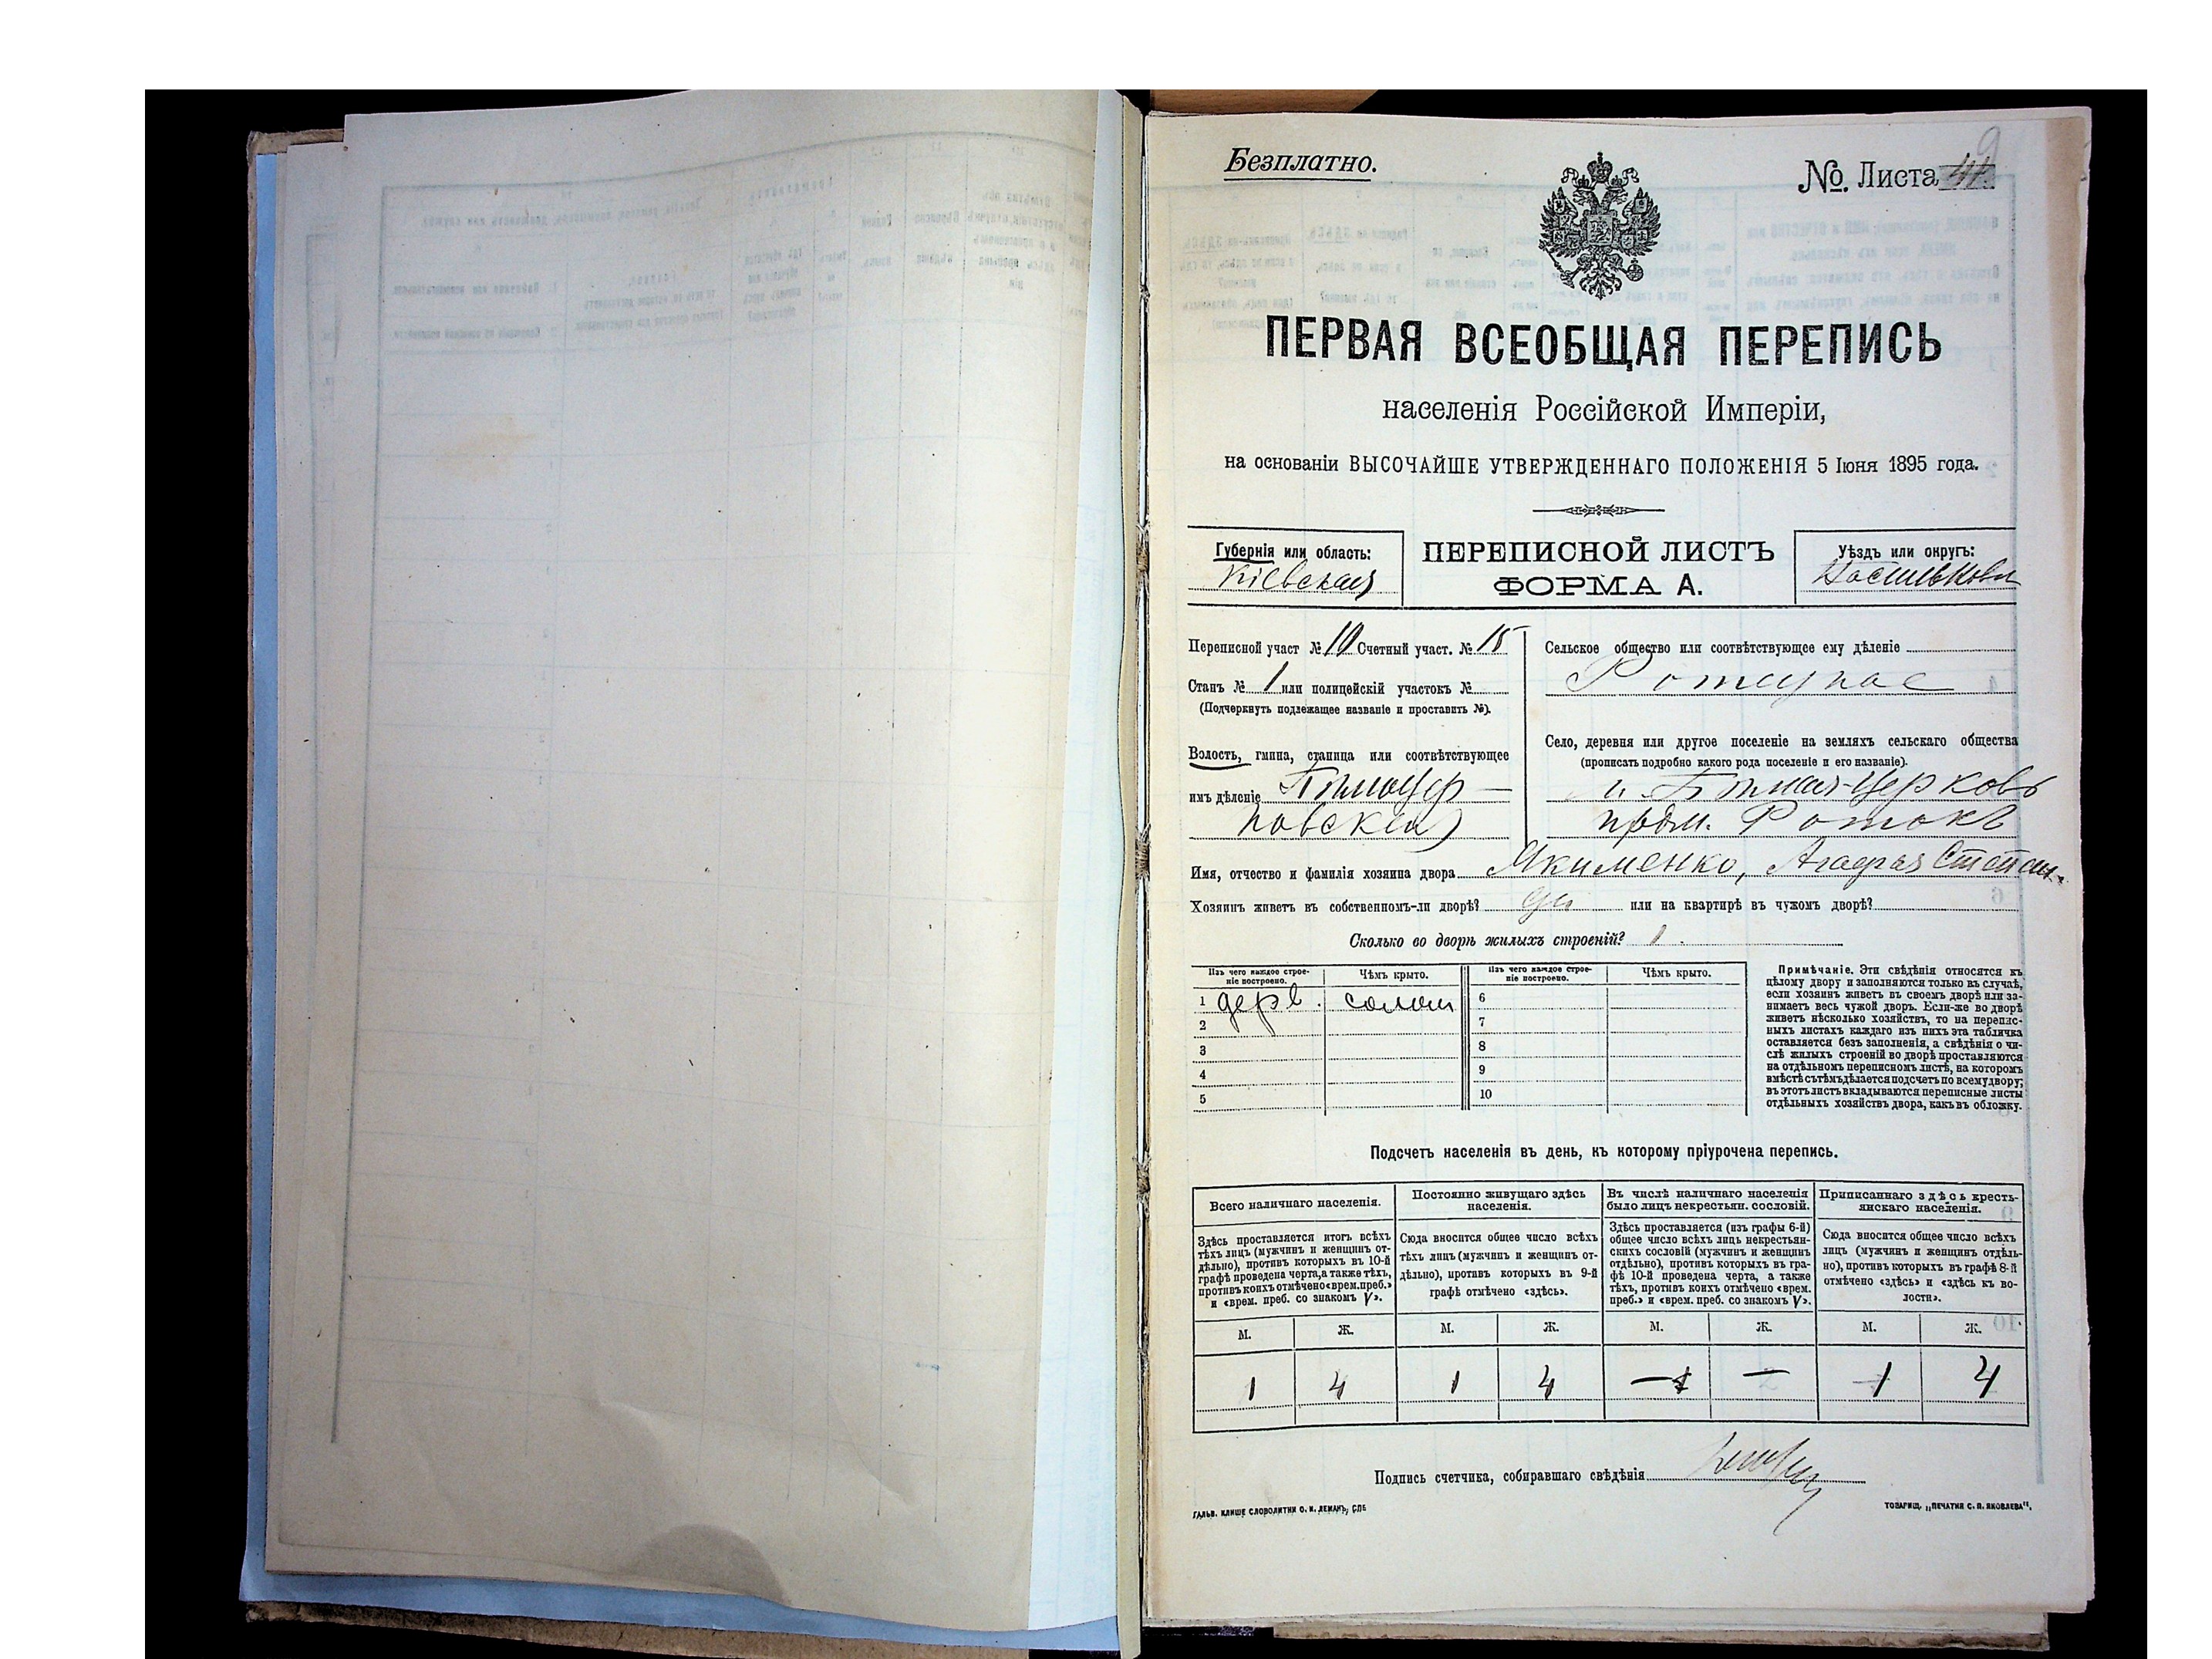 Безплатно.
№. Листа 44
9
ПЕРВАЯ ВСЕОБЩАЯ ПЕРЕПИСЬ
населенія Россійской Имперіи,
на основаніи ВЫСОЧАЙШЕ УТВЕРЖДЕННАГО ПОЛОЖЕНІЯ 5 Іюня 1895 года.
Губернія или область:
Кіевская
ПЕРЕПИСНОЙ ЛИСТЪ
ФОРМА А.
Уѣздъ или округъ:
Васильков
Переписной участ № 10 Счетный участ. № 15
Станъ № 1 или полицейскій участокъ №
(Подчеркнуть подлежащее названіе и проставить №).
Волость, гмина, станица или соотвѣтствующее
имъ дѣленіе Бѣлоцер-
ковская
Сельское общество или соотвѣтствующее ему дѣленіе
Село, деревня или другое поселеніе на земляхъ сельскаго общества
(прописать подробно какого рода поселеніе и его названіе).
м. Бѣлая-Церковь
Ротокъ
Имя, отчество и фамилія хозяина двора Якименко, Агафія Степан.
Хозяинъ живетъ въ собственномъ-ли дворѣ? да или на квартирѣ въ чужомъ дворѣ?
Сколько во дворѣ жилыхъ строеній? 1.
Изъ чего каждое строе-
ніе построено.
Чѣмъ крыто.
Изъ чего каждое строе-
ніе построено.
Чѣмъ крыто.
1 дерв. солом 6
2 7
3 8
4 9
5 10
Примѣчаніе. Эти свѣдѣнія относятся къ
цѣлому двору и заполняются только въ случаѣ,
если хозяинъ живетъ въ своемъ дворѣ или за-
нимаетъ весь чужой дворъ. Если-же во дворѣ
живетъ нѣсколько хозяйствъ, то на перепис-
ныхъ листахъ каждаго изъ нихъ эта табличка
оставляется безъ заполненія, а свѣдѣнія о чи-
слѣ жилыхъ строеній во дворѣ проставляются
на отдѣльномъ переписномъ листѣ, на которомъ
вмѣстѣ съ тѣмъ дѣлается подсчетъ по всему двору;
въ этотъ листъ вкладываются переписные листы
отдѣльныхъ хозяйствъ двора, какъ въ обложку.
Подсчетъ населенія въ день, къ которому пріурочена перепись.
Всего наличнаго населенія.
Здѣсь проставляется итогъ всѣхъ
тѣхъ лицъ (мужчинъ и женщинъ от-
дѣльно), противъ которыхъ въ 10-й
графѣ проведена черта, а также тѣхъ,
противъ коихъ отмѣчено «врем. преб.»
и «врем. преб. со знакомъ V».
Постоянно живущаго здѣсь
населенія.
Сюда вносится общее число всѣхъ
тѣхъ лицъ (мужчинъ и женщинъ от-
дѣльно), противъ которыхъ въ 9-й
графѣ отмѣчено «здѣсь».
Въ числѣ наличнаго населенія
было лицъ некрестьян. сословій.
Здѣсь проставляется (изъ графы 6-й)
общее число всѣхъ лицъ некрестьян-
скихъ сословій (мужчинъ и женщинъ
отдѣльно), противъ которыхъ въ гра-
фѣ 10-й проведена черта, а также
тѣхъ, противъ коихъ отмѣчено «врем.
преб.» и «врем. преб. со знакомъ V».
Приписаннаго здѣсь кресть-
янскаго населенія.
Сюда вносится общее число всѣхъ
лицъ (мужчинъ и женщинъ отдѣль-
но), противъ которыхъ въ графѣ 8-й
отмѣчено «здѣсь» и «здѣсь къ во-
лости».
М. Ж. М. Ж. М. Ж. М. Ж.
1 4 1 4 — — 1 4
Подпись счетчика, собиравшаго свѣдѣнія
ГАЛЬВ. КЛИШЕ СЛОВОЛИТНИ О. И. ЛЕМАНЪ, СПБ
ТОВАРИЩ. „ПЕЧАТНЯ С. П. ЯКОВЛЕВА“.